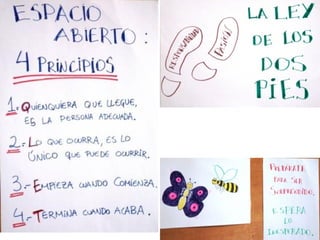 ESPACIO
ABIERTO :
4 PRINCIPIOS
1.- QUIENQUIERA QUE LLEGUE,
ES LA PERSONA ADECUADA.
2.- LO QUE OCURRA, ES LO
ÚNICO QUE PUEDE OCURRIR.
3.- EMPIEZA CUANDO COMIENZA.
4.- TERMINA CUANDO ACABA.
RESPONSABILIDAD
PASIÓN
LA LEY
DE LOS
DOS
PIES
PREPÁRATE
PARA SER
SORPRENDIDO.
ESPERA
LO
INESPERADO.